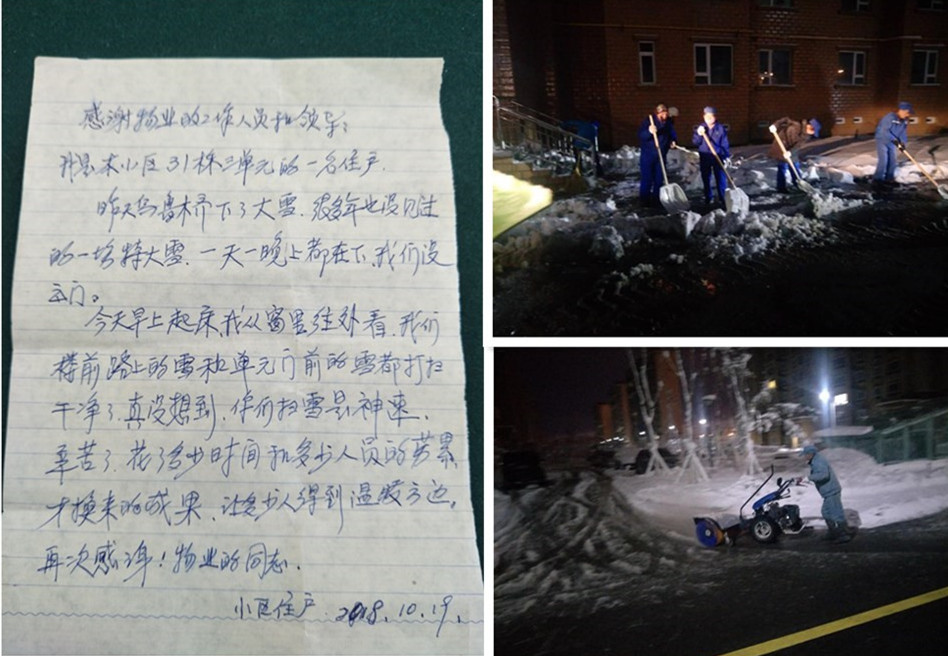 感谢物业的工作人员和领导：
我是本小区31栋三单元的一名住户.
昨天乌鲁木齐下了大雪.很多年也没见过
的一场特大雪.一天一晚上都在下,我们没
出门。
今天早上起床,我从窗里往外看.我们
楼前路上的雪和单元门前的雪都打扫
干净了.真没想到.你们扫雪是神速.
辛苦了.花了多少时间和多少人员的劳累
才换来的成果.让多少人得到温暖方边.
再次感谢！物业的同志.
小区住户 2018.10.19.